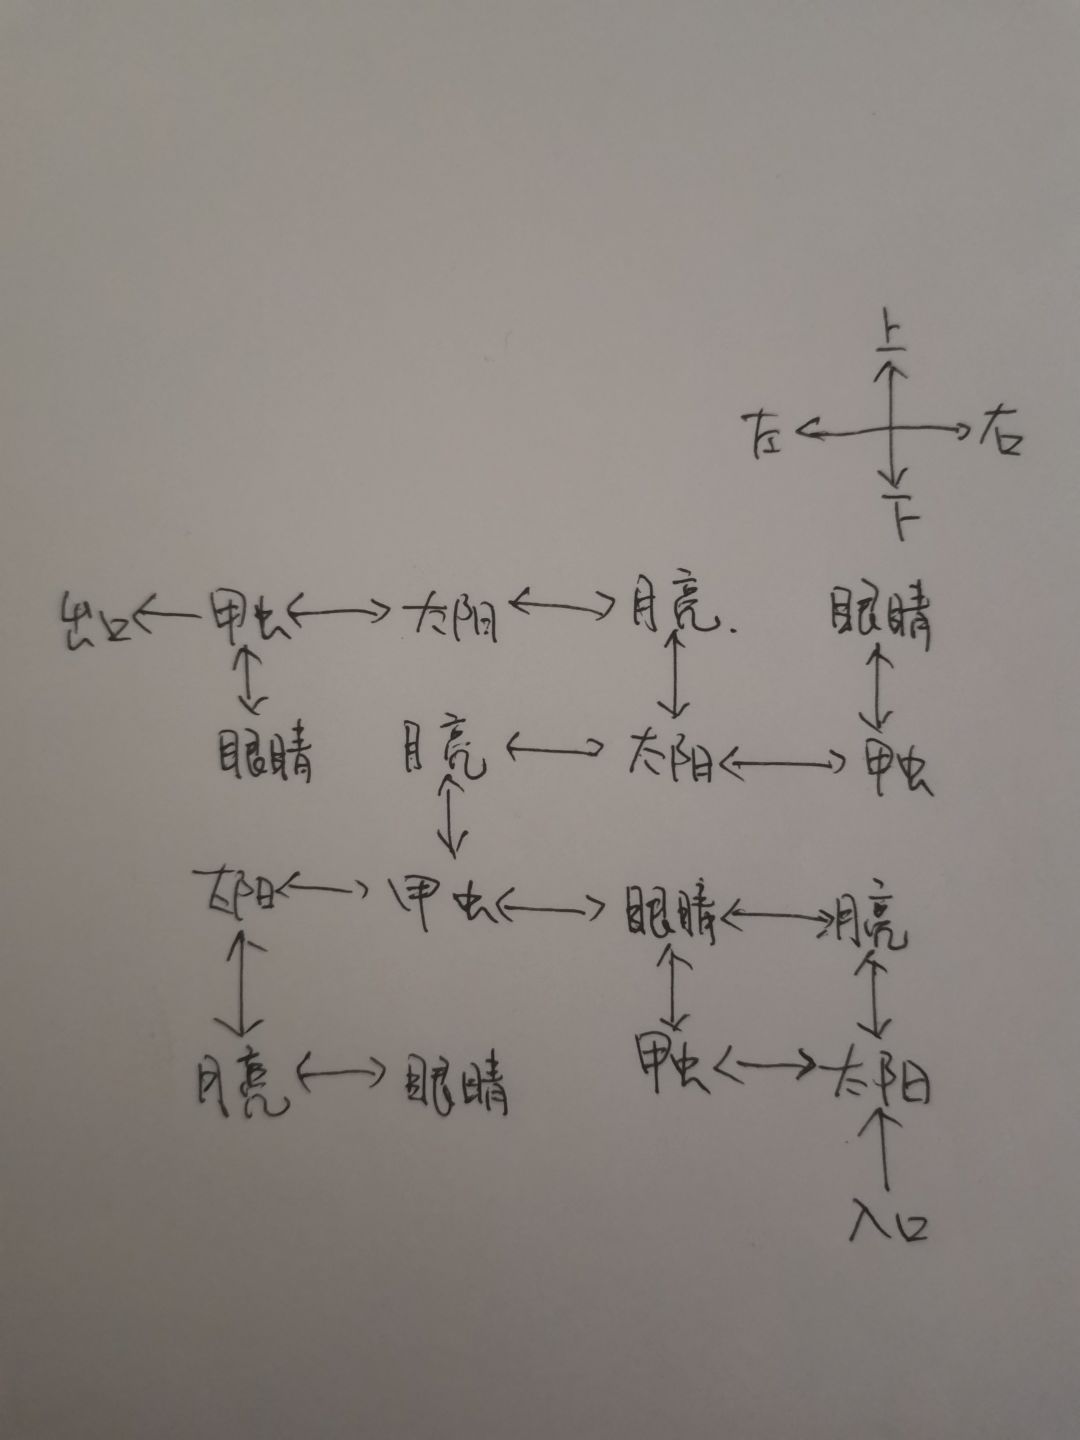 上
左 右
下
出口 甲虫 太阳 月亮. 眼睛
眼睛 月亮 太阳 甲虫
太阳 甲虫 眼睛 月亮
月亮 眼睛 甲虫 太阳
入口